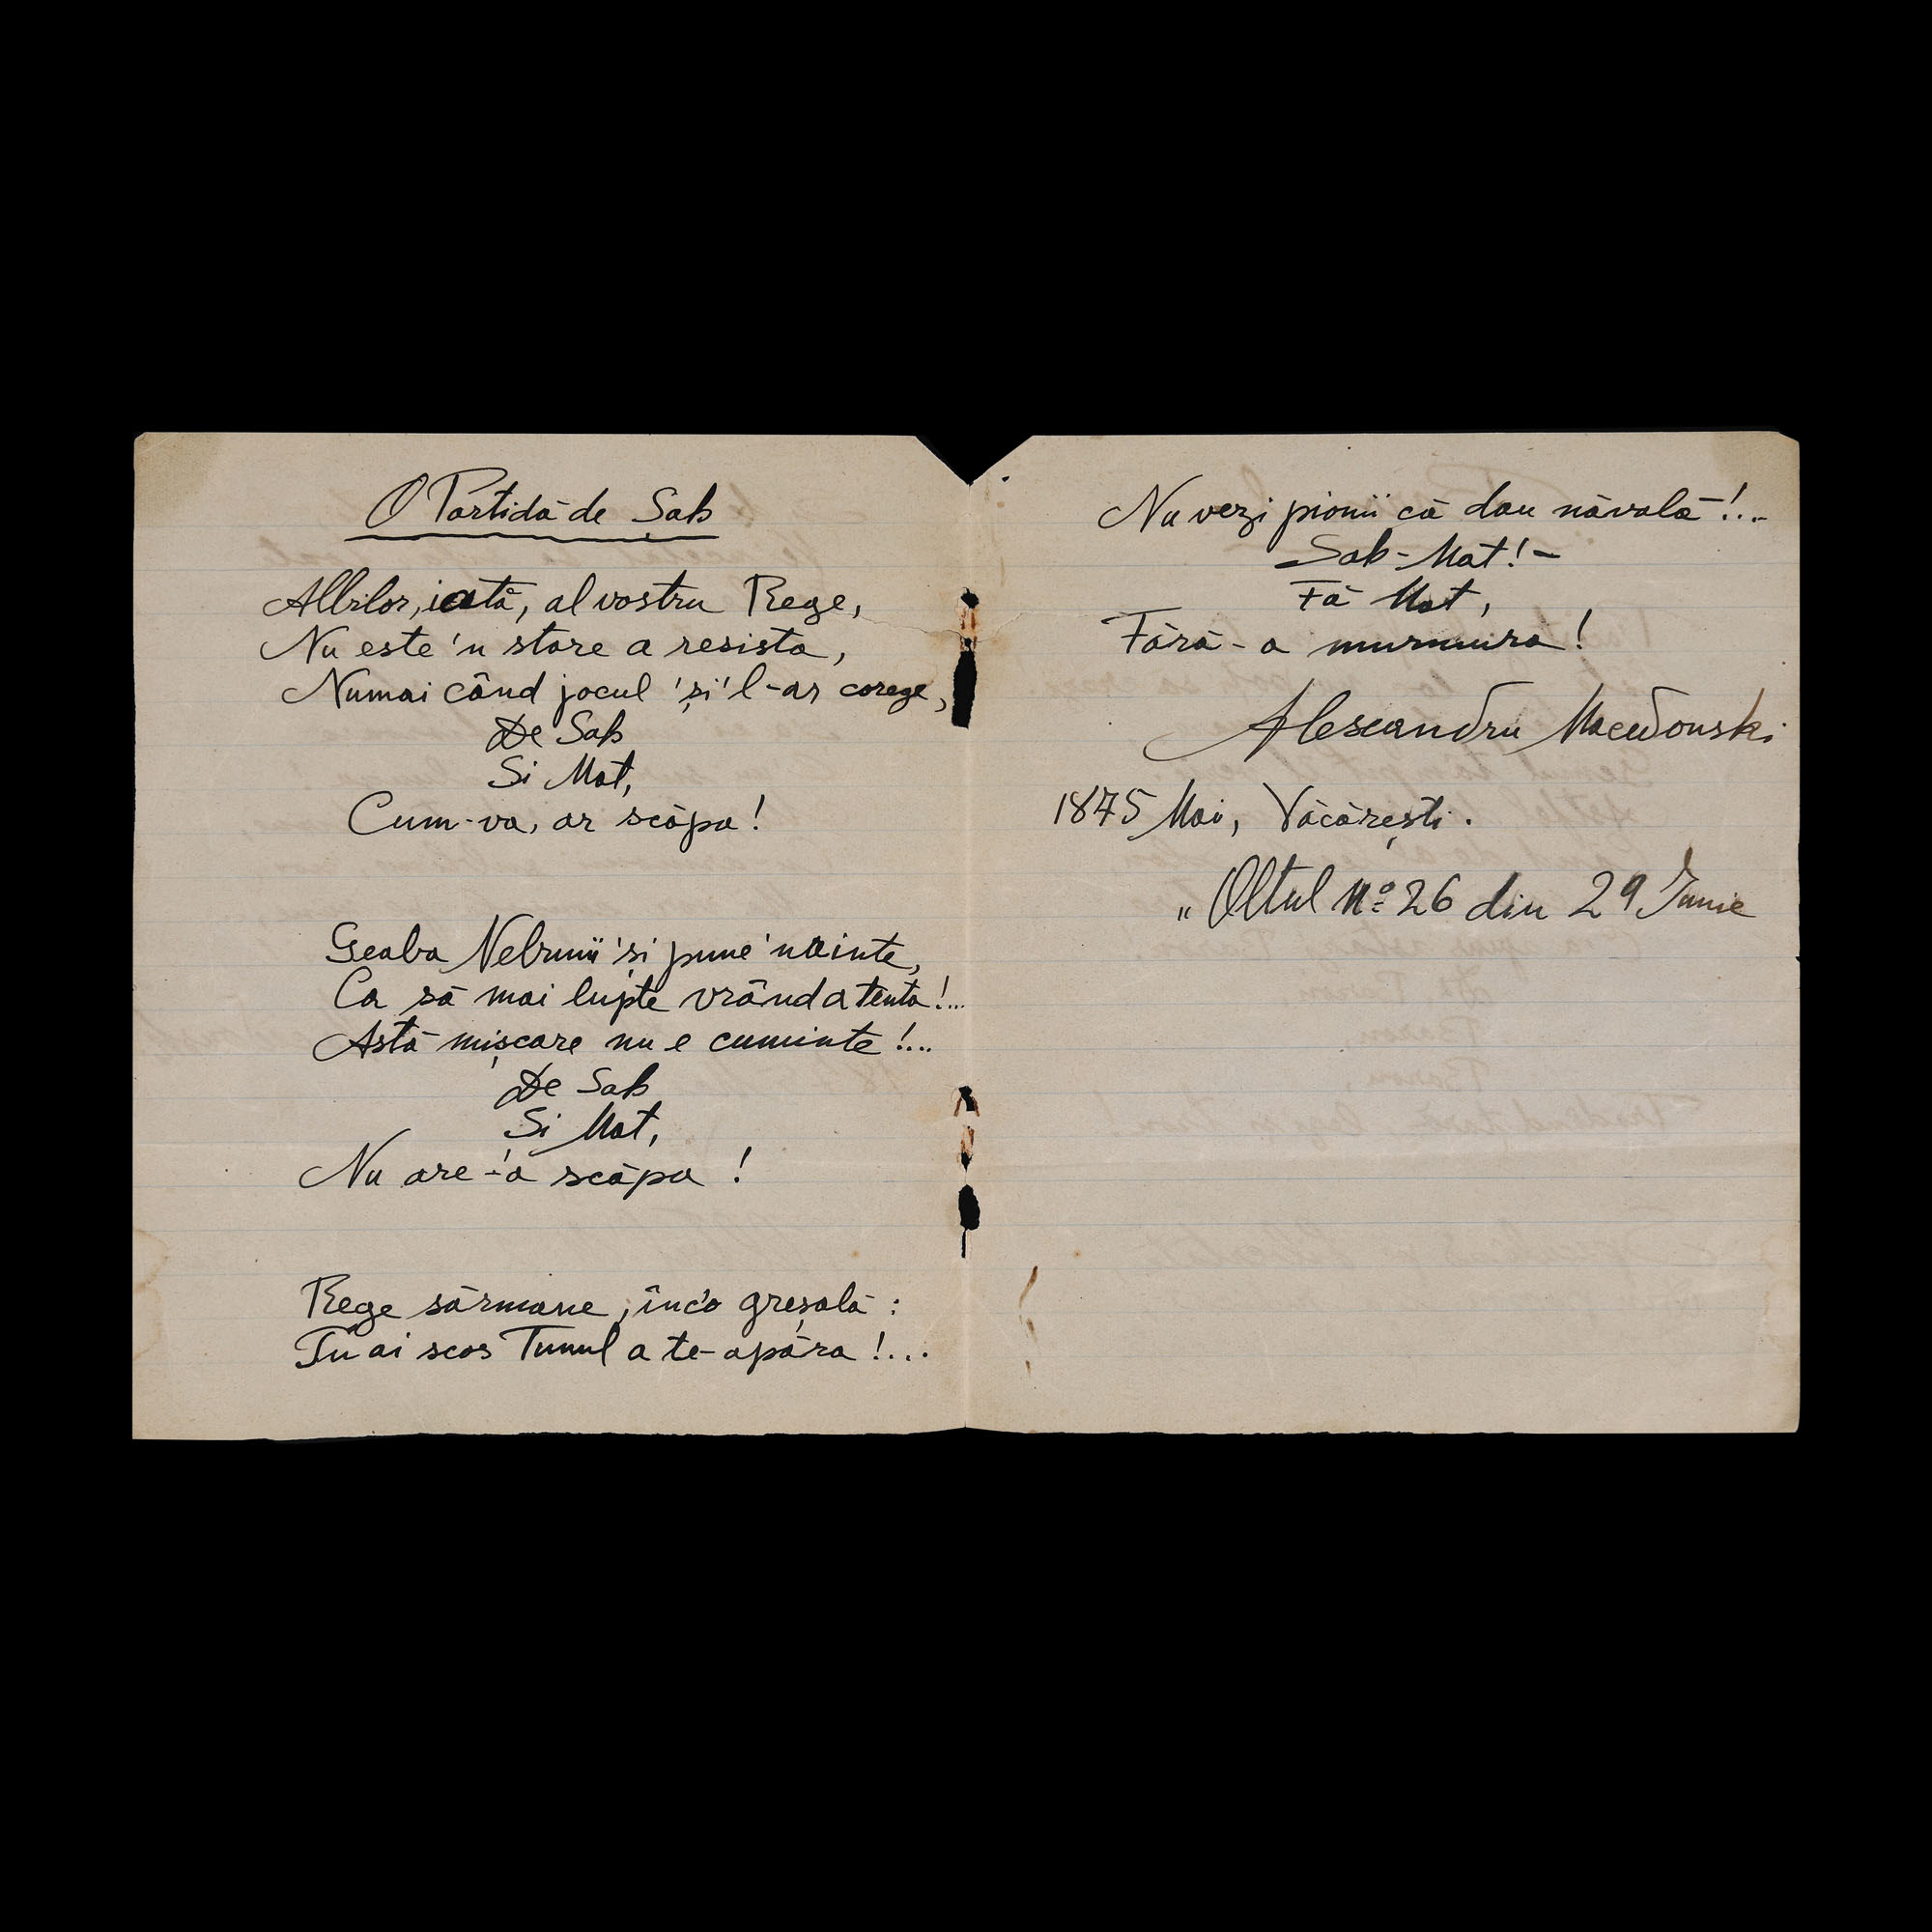 O Partidă de Șah
Albilor, iată, al vostru Rege,
Nu este 'n stare a resista,
Numai când jocul 'și 'l-ar corege,
De Sah
Si Mat,
Cum-va, ar scăpa!
Geaba Nebunii 'și pune 'nainte,
Ca să mai lupte vrând a tenta!...
Astă mișcare nu e cuminte!...
De Sah
Si Mat,
Nu are-'a scăpa!
Rege sărmane, înc'o greșală:
Tu ai scos Tunul a te-apăra!...
Nu vezi pionii că dau năvală!...
Sah-Mat!-
Fă Mat,
Fără-a murmura!
Alesandru Macedonski
1875 Mai, Văcărești.
„Oltul No 26 din 29 Iunie